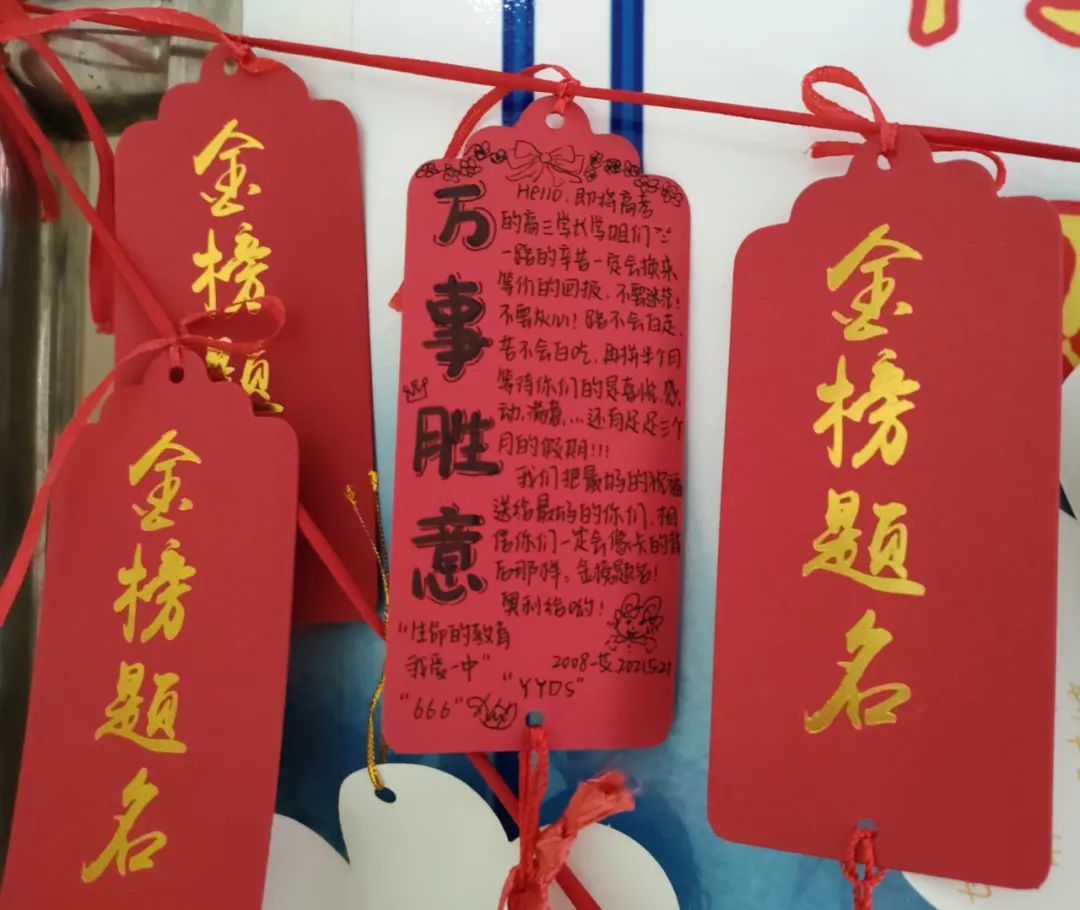 金榜题
金榜题名
万事胜意
Hello，即将高考
的高三学长学姐们
一路的辛苦一定会换来
等价的回报，不要迷茫！
不要灰心！路不会白走，
苦不会白吃，再拼半个月
等待你们的是喜悦、感
动、满意……还有足足三个
月的假期！！！
我们把最好的祝福
送给最好的你们，相
信你们一定会像卡的背
后那样：金榜题名！
奥利给哟！
“生命的教育
我爱一中”
2008 2021.5.21
“YYDS”
“666”
金榜题名